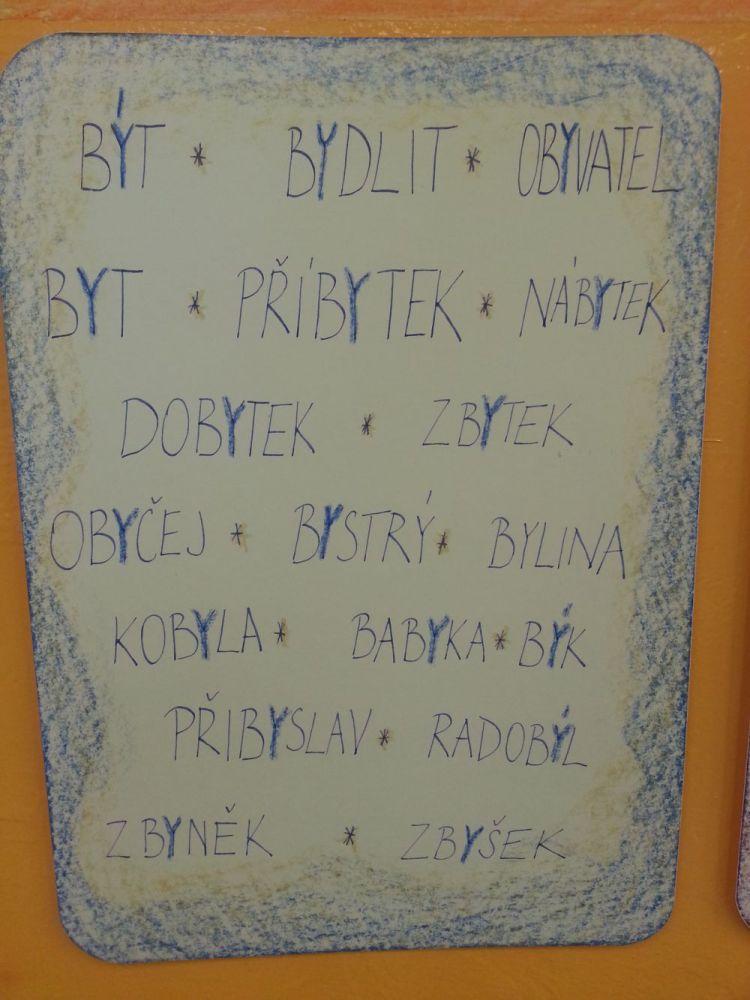 BÝT * BYDLIT * OBYVATEL
BYT * PŘÍBYTEK * NÁBYTEK
DOBYTEK * ZBYTEK
OBYČEJ * BYSTRÝ * BYLINA
KOBYLA * BABYKA * BÝK
PŘIBYSLAV * RADOBÝL
ZBYNĚK * ZBYŠEK